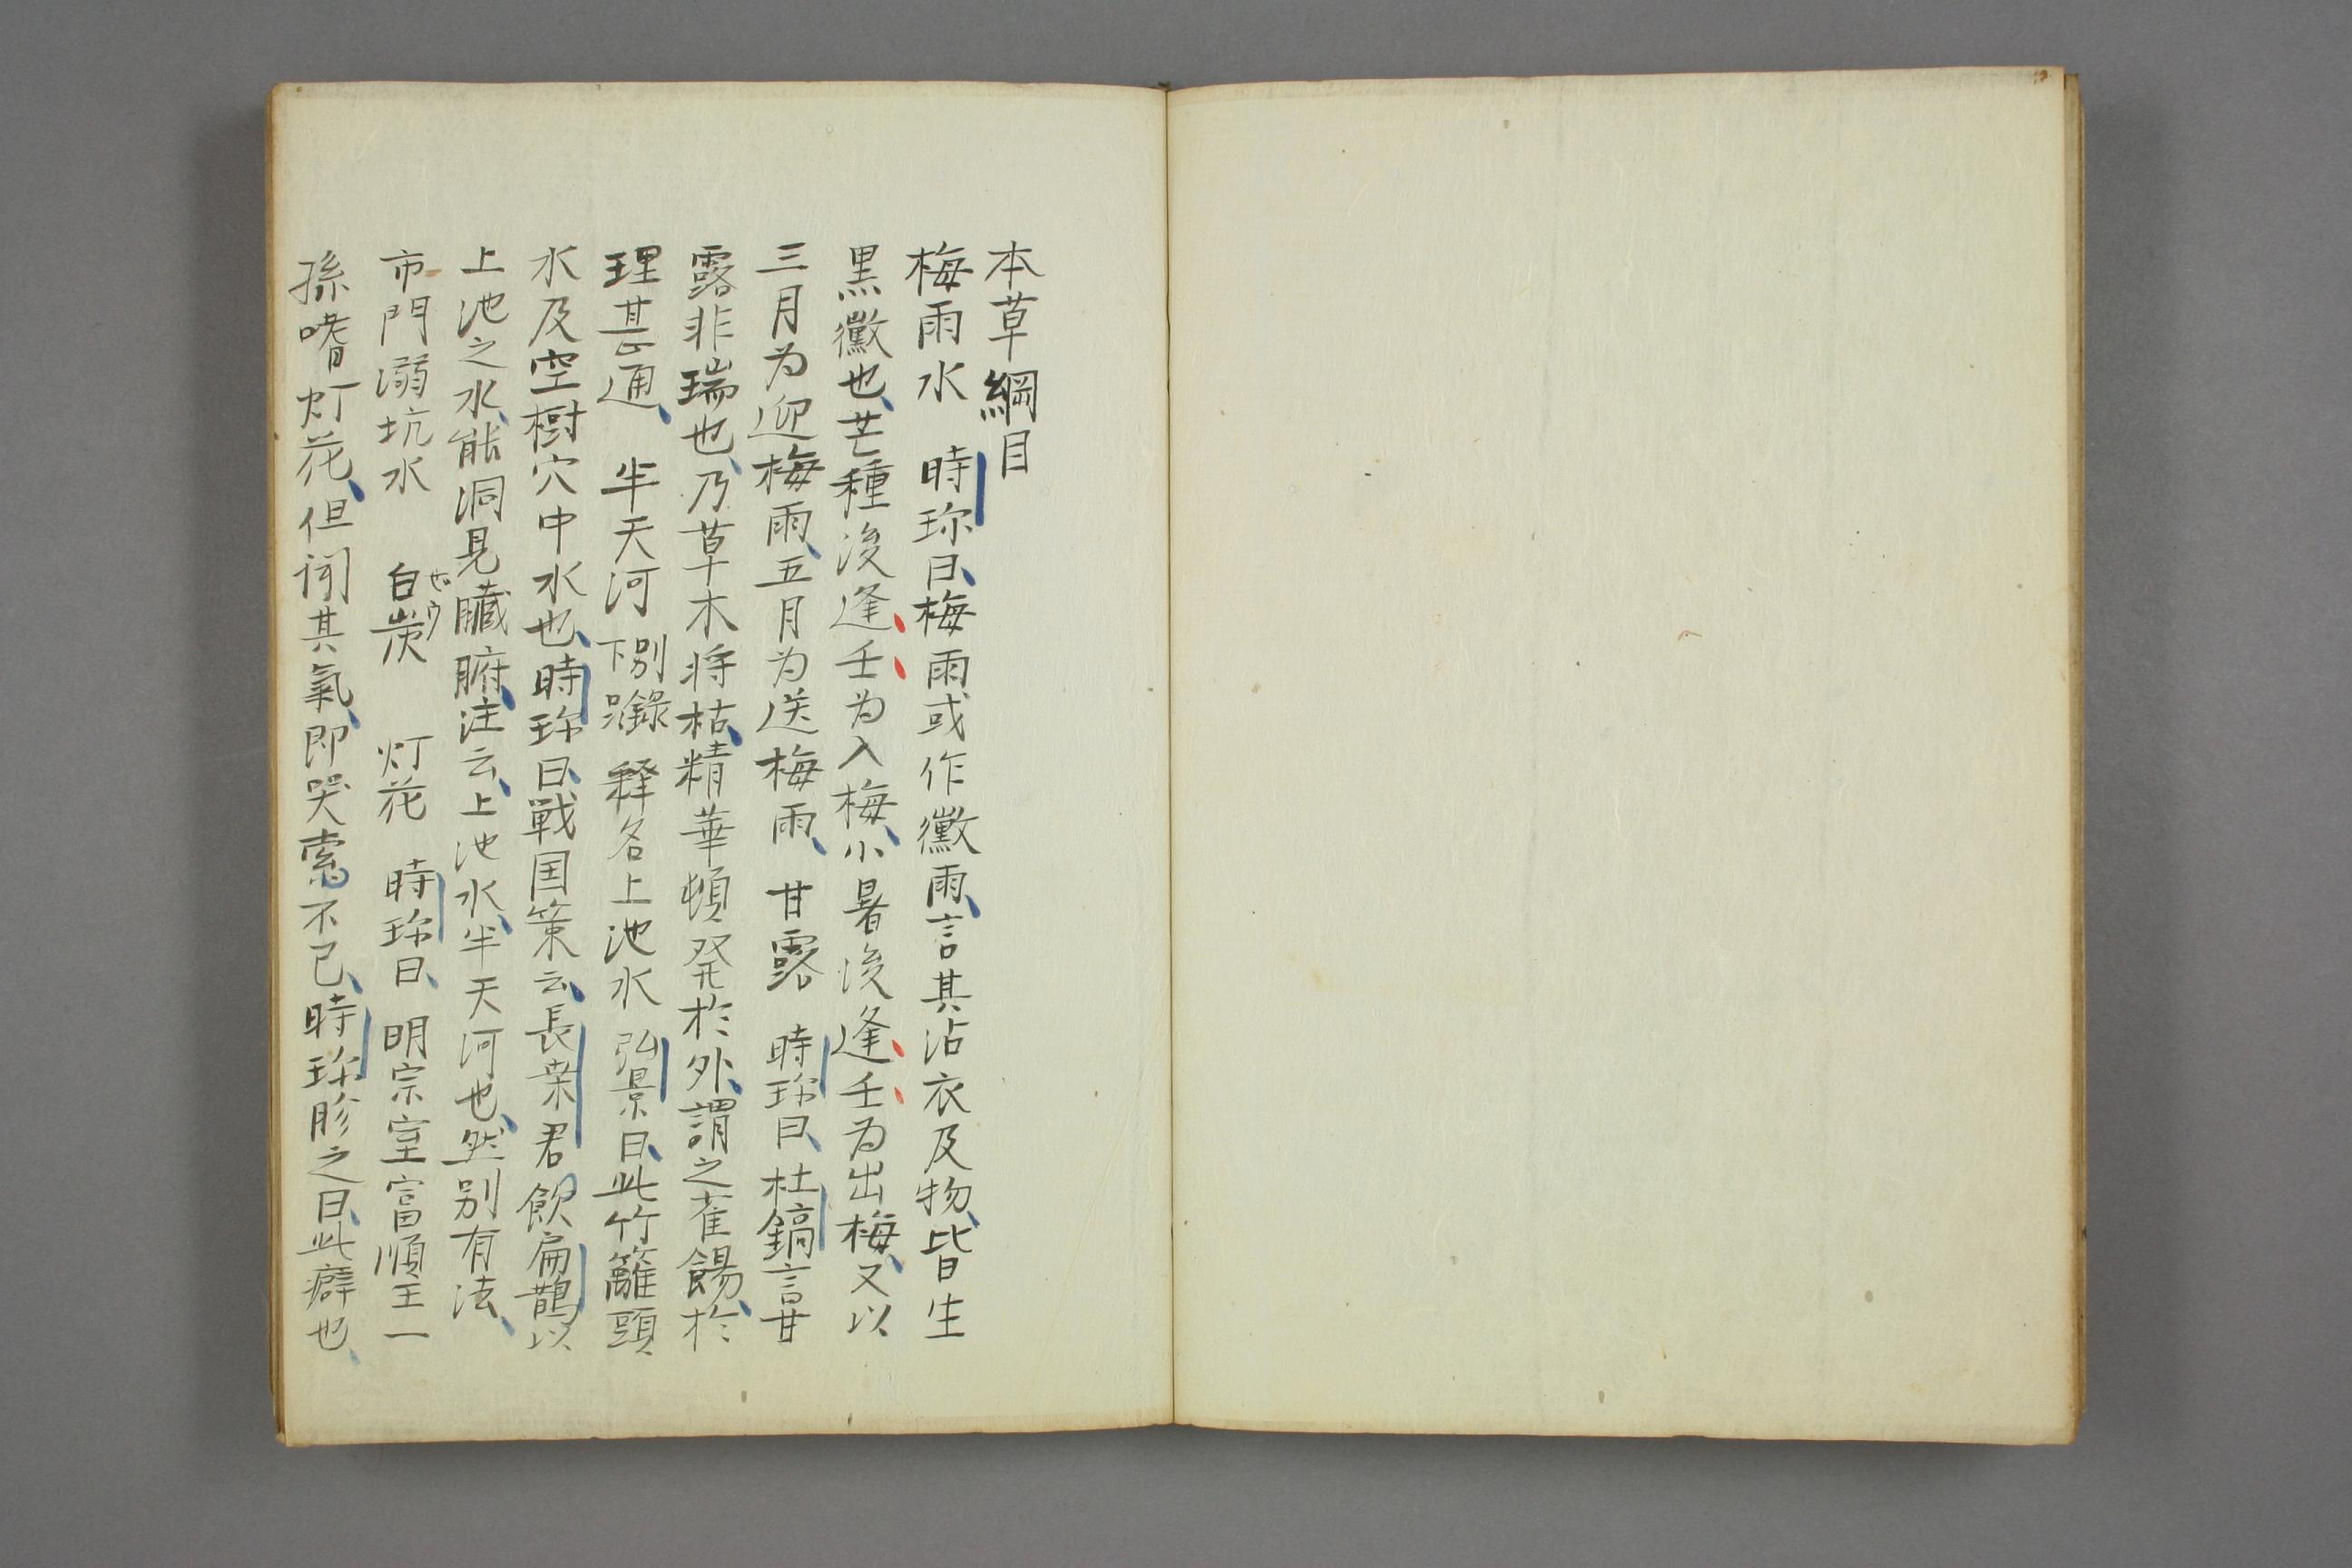 本草綱目
梅雨水　時珎曰、梅雨或作黴雨、言其沾衣及物、皆生
黒黴也、芒種後逢壬为入梅、小暑後逢壬为出梅、又以
三月为迎梅雨、五月为送梅雨、甘露　時珎曰、杜鎬言甘
露非瑞也、乃草木将枯、精華頓発於外、謂之雀餳、於
理甚通、　半天河　別録下品　釋名上池水　弘景曰、此竹籬頭
水及空樹穴中水也、時珎曰、戦国策云、長桒君飲扁鵲以
上池之水、能洞見臓腑、注云、上池水、半天河也、然别有法、
市門溺坑水　白炭　灯花　時珎曰、明宗室富順王一
せウ
孫嗜灯花、但闻其氣、即哭索不已、時珎胗之曰、此癖也、